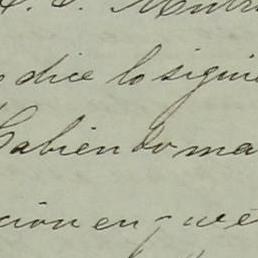 dice lo sigui
Habiendo ma
ción en que